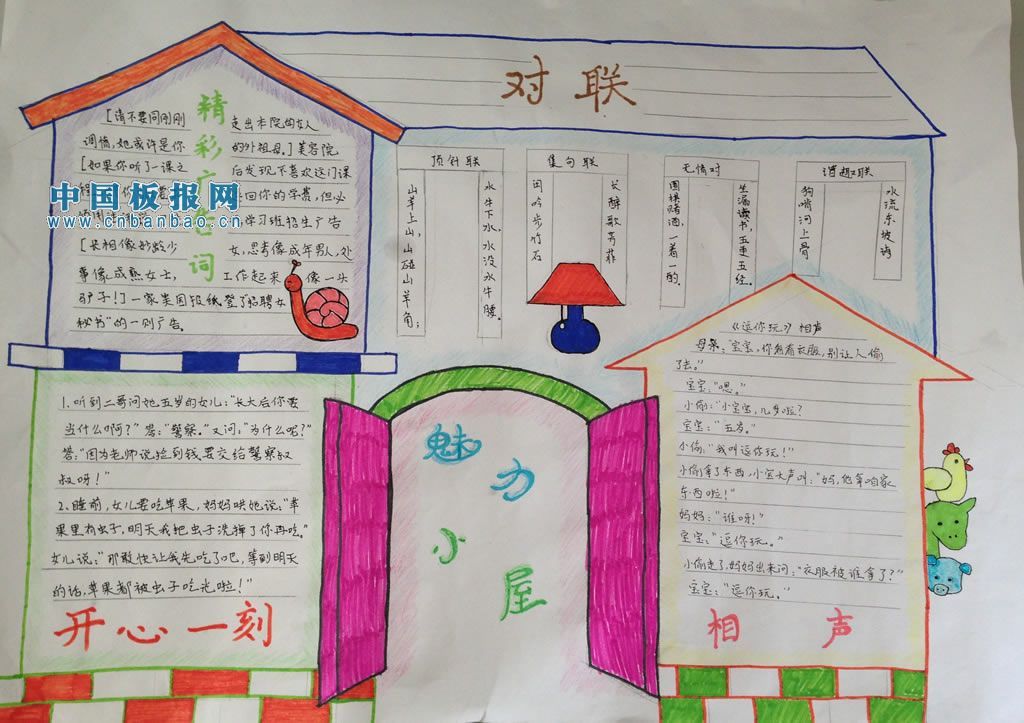 对联
精彩广告词
[请不要同刚刚走出本院的女人
调情,她或许是你的外祖母。]美容院
[如果你听了一课之后发现不喜欢这门课
回你的学费,但必
学习班招生广告
[长相像妙龄少女,思考像成年男人,处
事像成熟女士,工作起来像一头
驴子!]一家美国报纸登了招聘女
秘书"的一则广告。
中国板报网
www.cnbanbao.cn
顶针联
水牛下水,水没水牛腰。
山羊上山,山碰山羊角;
集句联
长醉歌芳菲
闲吟步竹石
无情对
生漏读书,五更五经。
围棋赌酒,一着一酌。
谐趣联
水流东坡诗
狗啃河上骨
1、听到二哥问她五岁的女儿:"长大后你要
当什么啊?"答:"警察。"又问:"为什么呢?"
答:"因为老师说捡到钱要交给警察叔
叔呀!"
2、睡前,女儿要吃苹果,妈妈哄她说:"苹
果里有虫子,明天我把虫子洗掉了你再吃。"
女儿说:"那敢快让我先吃了吧,等到明天
的话,苹果都被虫子吃光啦!"
开心一刻
魅力小屋
《逗你玩》相声
母亲:"宝宝,你看着衣服,别让人偷
了去。"
宝宝:"嗯。"
小偷:"小宝宝,几岁啦?
宝宝:"五岁。"
小偷:"我叫逗你玩!"
小偷拿了东西,小宝大声叫:"妈,他拿咱家
东西啦!"
妈妈:"谁呀!"
宝宝:"逗你玩。"
小偷走了,妈妈出来问:"衣服被谁拿了?"
宝宝:"逗你玩。"
相声